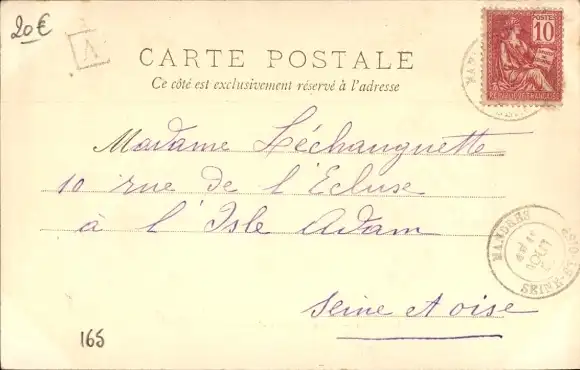 20 €
A
CARTE POSTALE
Ce côté est exclusivement réservé à l'adresse
POSTES
10
RÉPUBLIQUE FRANÇAISE
Madame Léchauguette
10 rue de l'Ecluse
à l'Isle Adam
Seine et oise
MANDRES
AOUT
SEINE-ET-OISE
165